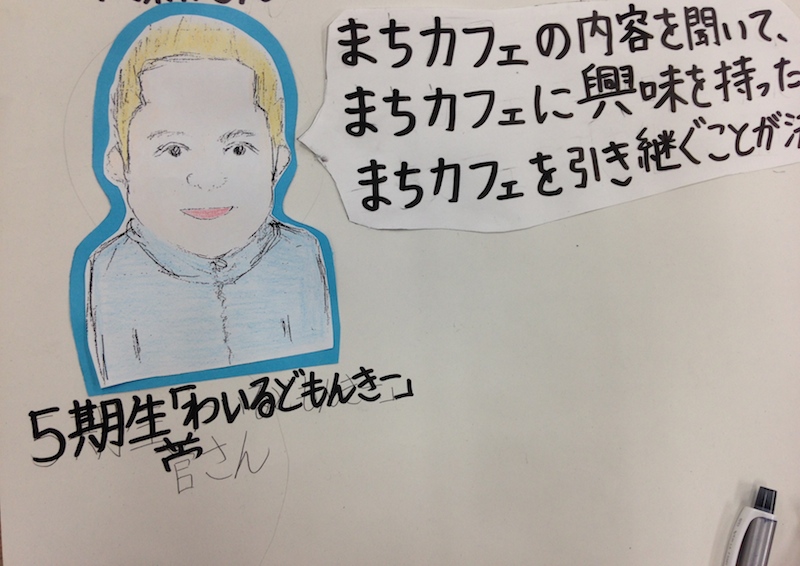 まちカフェの内容を聞いて、
まちカフェに興味を持った
まちカフェを引き継ぐことが
5期生「わいるどもんきー」
菅さん